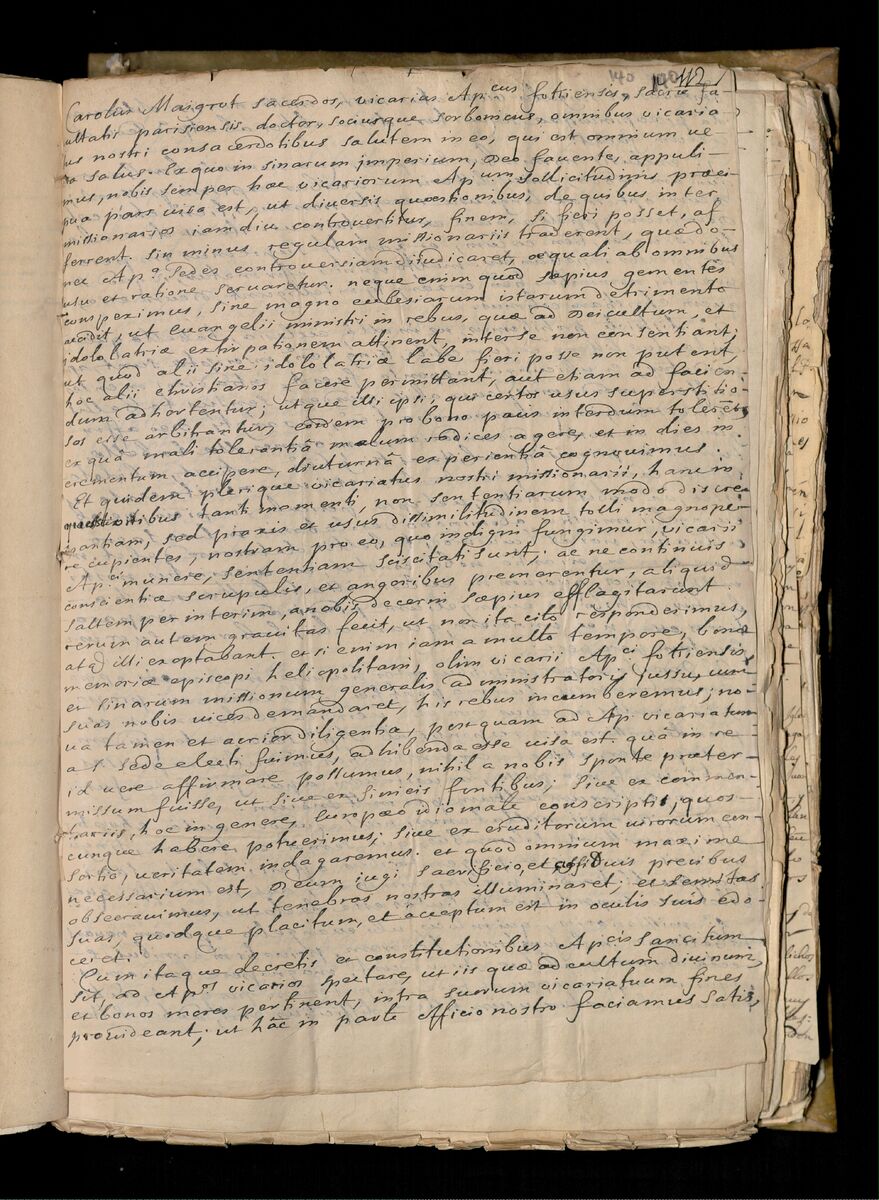 140 140 112
Carolus Maigrot sacerdos, vicarius Ap.cus fokiensis, sacræ fa-
cultatis parisiensis doctor, sociusque sorbonicus, omnibus vicaria-
tus nostri consacerdotibus salutem in eo, qui est omnium ve
ra salus. Ex quo in sinarum imperium, Deo favente, appuli-
mus, nobis semper hæc vicariorum Ap.um sollicitudinis præci-
pua pars visa est, ut diversis quæstionibus, de quibus inter
missionarios iamdiu controvertitur, finem, si fieri posset, af
ferrent. sin minus regulam missionariis traderent, quæ do-
nec Ap.a Sedes controversiam diiudicaret, æquali ab omnibus
usu et ratione servaretur. neque enim quod sæpius gementes
conspeximus, sine magno ecclesiarum istarum detrimento
accidit, ut Euangelii ministri in rebus, quæ ad Dei cultum, et
idololatriæ extirpationem attinent, inter se non consentiant;
ut quod alii sine idololatriæ labe fieri posse non putent,
hoc alii christianos facere permittant, aut etiam ad facien-
dum adhortentur; utque illi ipsi, qui certos usus superstitio-
sos esse arbitrantur, eosdem pro bono pacis interdum tolerẽt,
ex quâ mali tolerantiâ malum radices agere, et in dies in
crementum accipere, diuturnâ experientiâ cognovimus.
Et quidem plerique vicariatus nostri missionarii, hanc in
quæstionibus tanti momenti, non sententiarum modo discre
pantiam, sed praxis et usus dissimilitudinem tolli magnope-
re cupientes, nostram pro eo, quo indigni fungimur, vicarii
Ap.ci munere, sententiam sciscitati sunt; ac ne continuis
conscientiæ scrupulis, et angoribus premerentur, aliquid
saltem per interim, a nobis decerni sæpius efflagitarunt
rerum autem gravitas fecit, ut non ita cito responderimus,
atq illi exoptabant. etsi enim iam a multo tempore, bonæ
memoriæ episcopi heliopolitani, olim vicarii Ap.ci fokiensis,
et sinarum missionum generalis administratoris jussu, cum
suas nobis vices demandaret, his rebus incumberemus; no-
va tamen et acrior diligentia, postquam ad Ap. vicariatum
a S. Sede electi fuimus, adhibenda esse visa est. quâ in re
id vere affirmare possumus, nihil a nobis sponte præter-
missum fuisse, ut sive ex sinicis fontibus; sive ex commen-
tariis, hoc in genere, Europæo idiomate conscriptis, quos-
cunque habere potuerimus; sive ex eruditorum virorum con-
sortio, veritatem indagaremus. et quod omnium maxime
necessarium est, Deum iugi sacrificio, et assiduis precibus
obsecravimus, ut tenebras nostras illuminaret; et semitas
suas, quidque placitum, et acceptum est in oculis suis edo-
ceret.
Cum itaque decretis et constitutionibus Ap.cis sancitum
sit, ad Ap.os vicarios spectare, ut iis quæ ad cultum divinum,
et bonos mores pertinent, intra suorum vicariatuum fines
provideant; ut hâc in parte officio nostro faciamus satis,